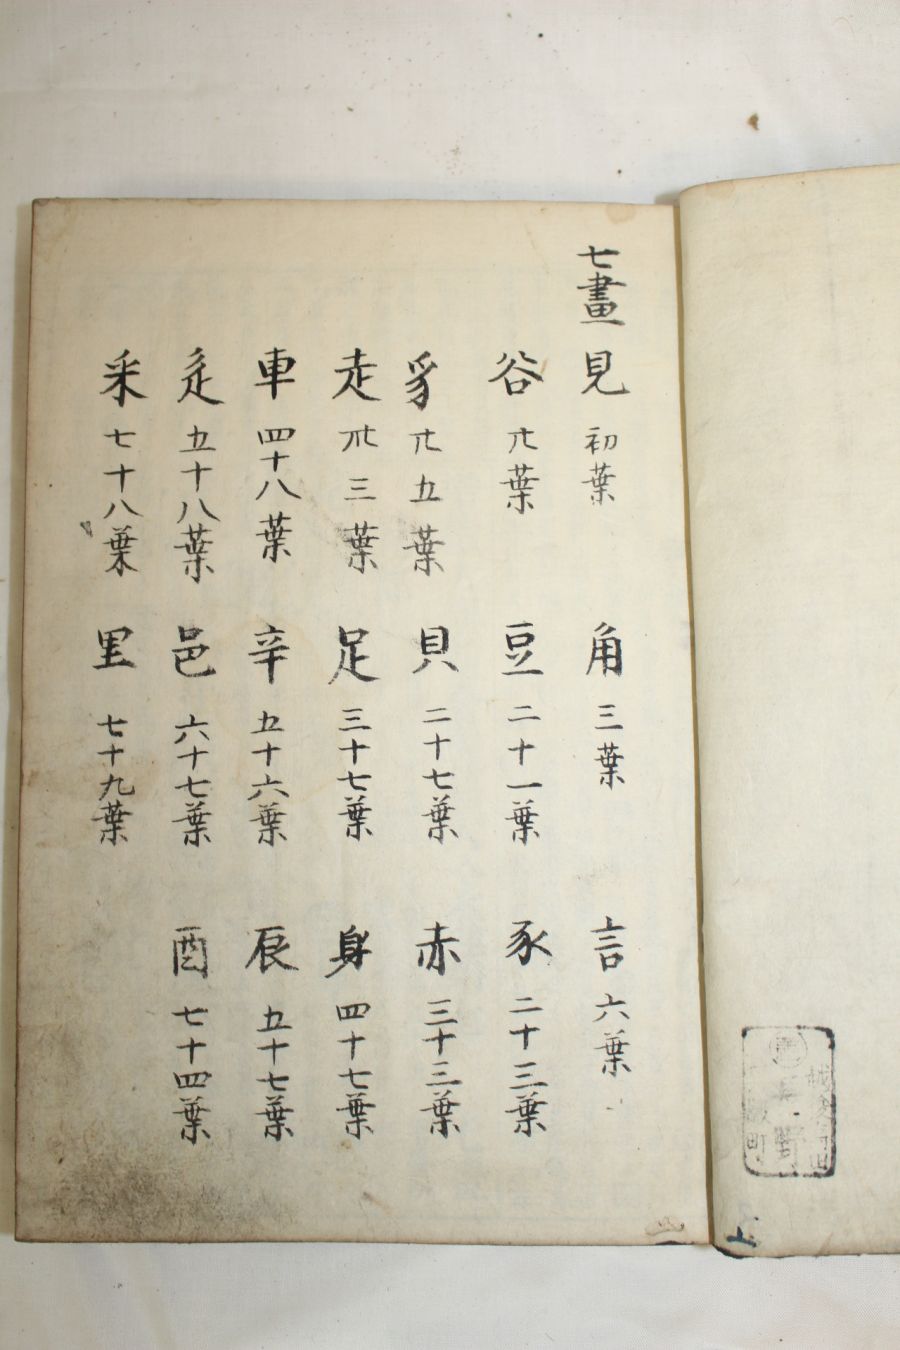 七畫 見 初葉 角 三葉 言 六葉
谷 廿葉 豆 二十一葉 豕 二十三葉
豸 廿五葉 貝 二十七葉 赤 三十三葉
走 卅三葉 足 三十七葉 身 四十七葉
車 四十八葉 辛 五十六葉 辰 五十七葉
辵 五十八葉 邑 六十七葉 酉 七十四葉
釆 七十八葉 里 七十九葉